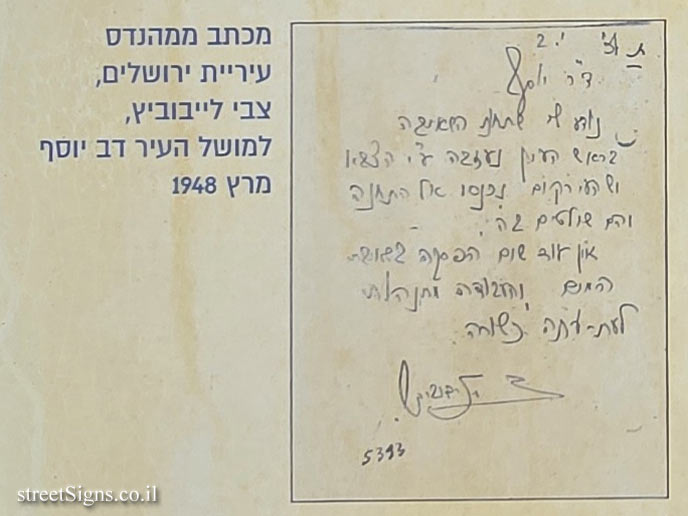 מכתב ממהנדס
עיריית ירושלים,
צבי לייבוביץ,
למושל העיר דב יוסף
מרץ 1948
ד"ר יוסף
נודע לי שתחנת השאיבה
בראש העין נעזבה ע"י הצבא
ושהעירקים נכנסו אל התחנה
והם שולטים בה.
אין עוד שום הפסקה בשאיבת
המים והעבודה מתנהלת
לעת-עתה כשורה.
לייבוביץ
5393
streetSigns.co.il